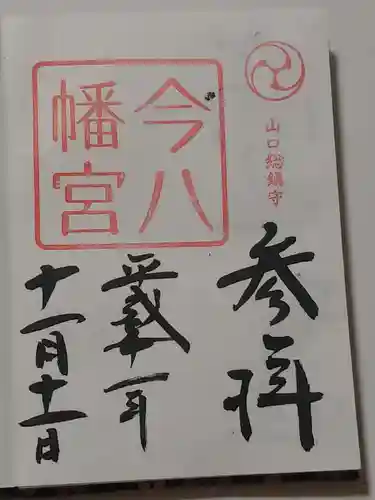 山口総鎮守
参拝
今八
幡宮
平成 一年
十一月十一日